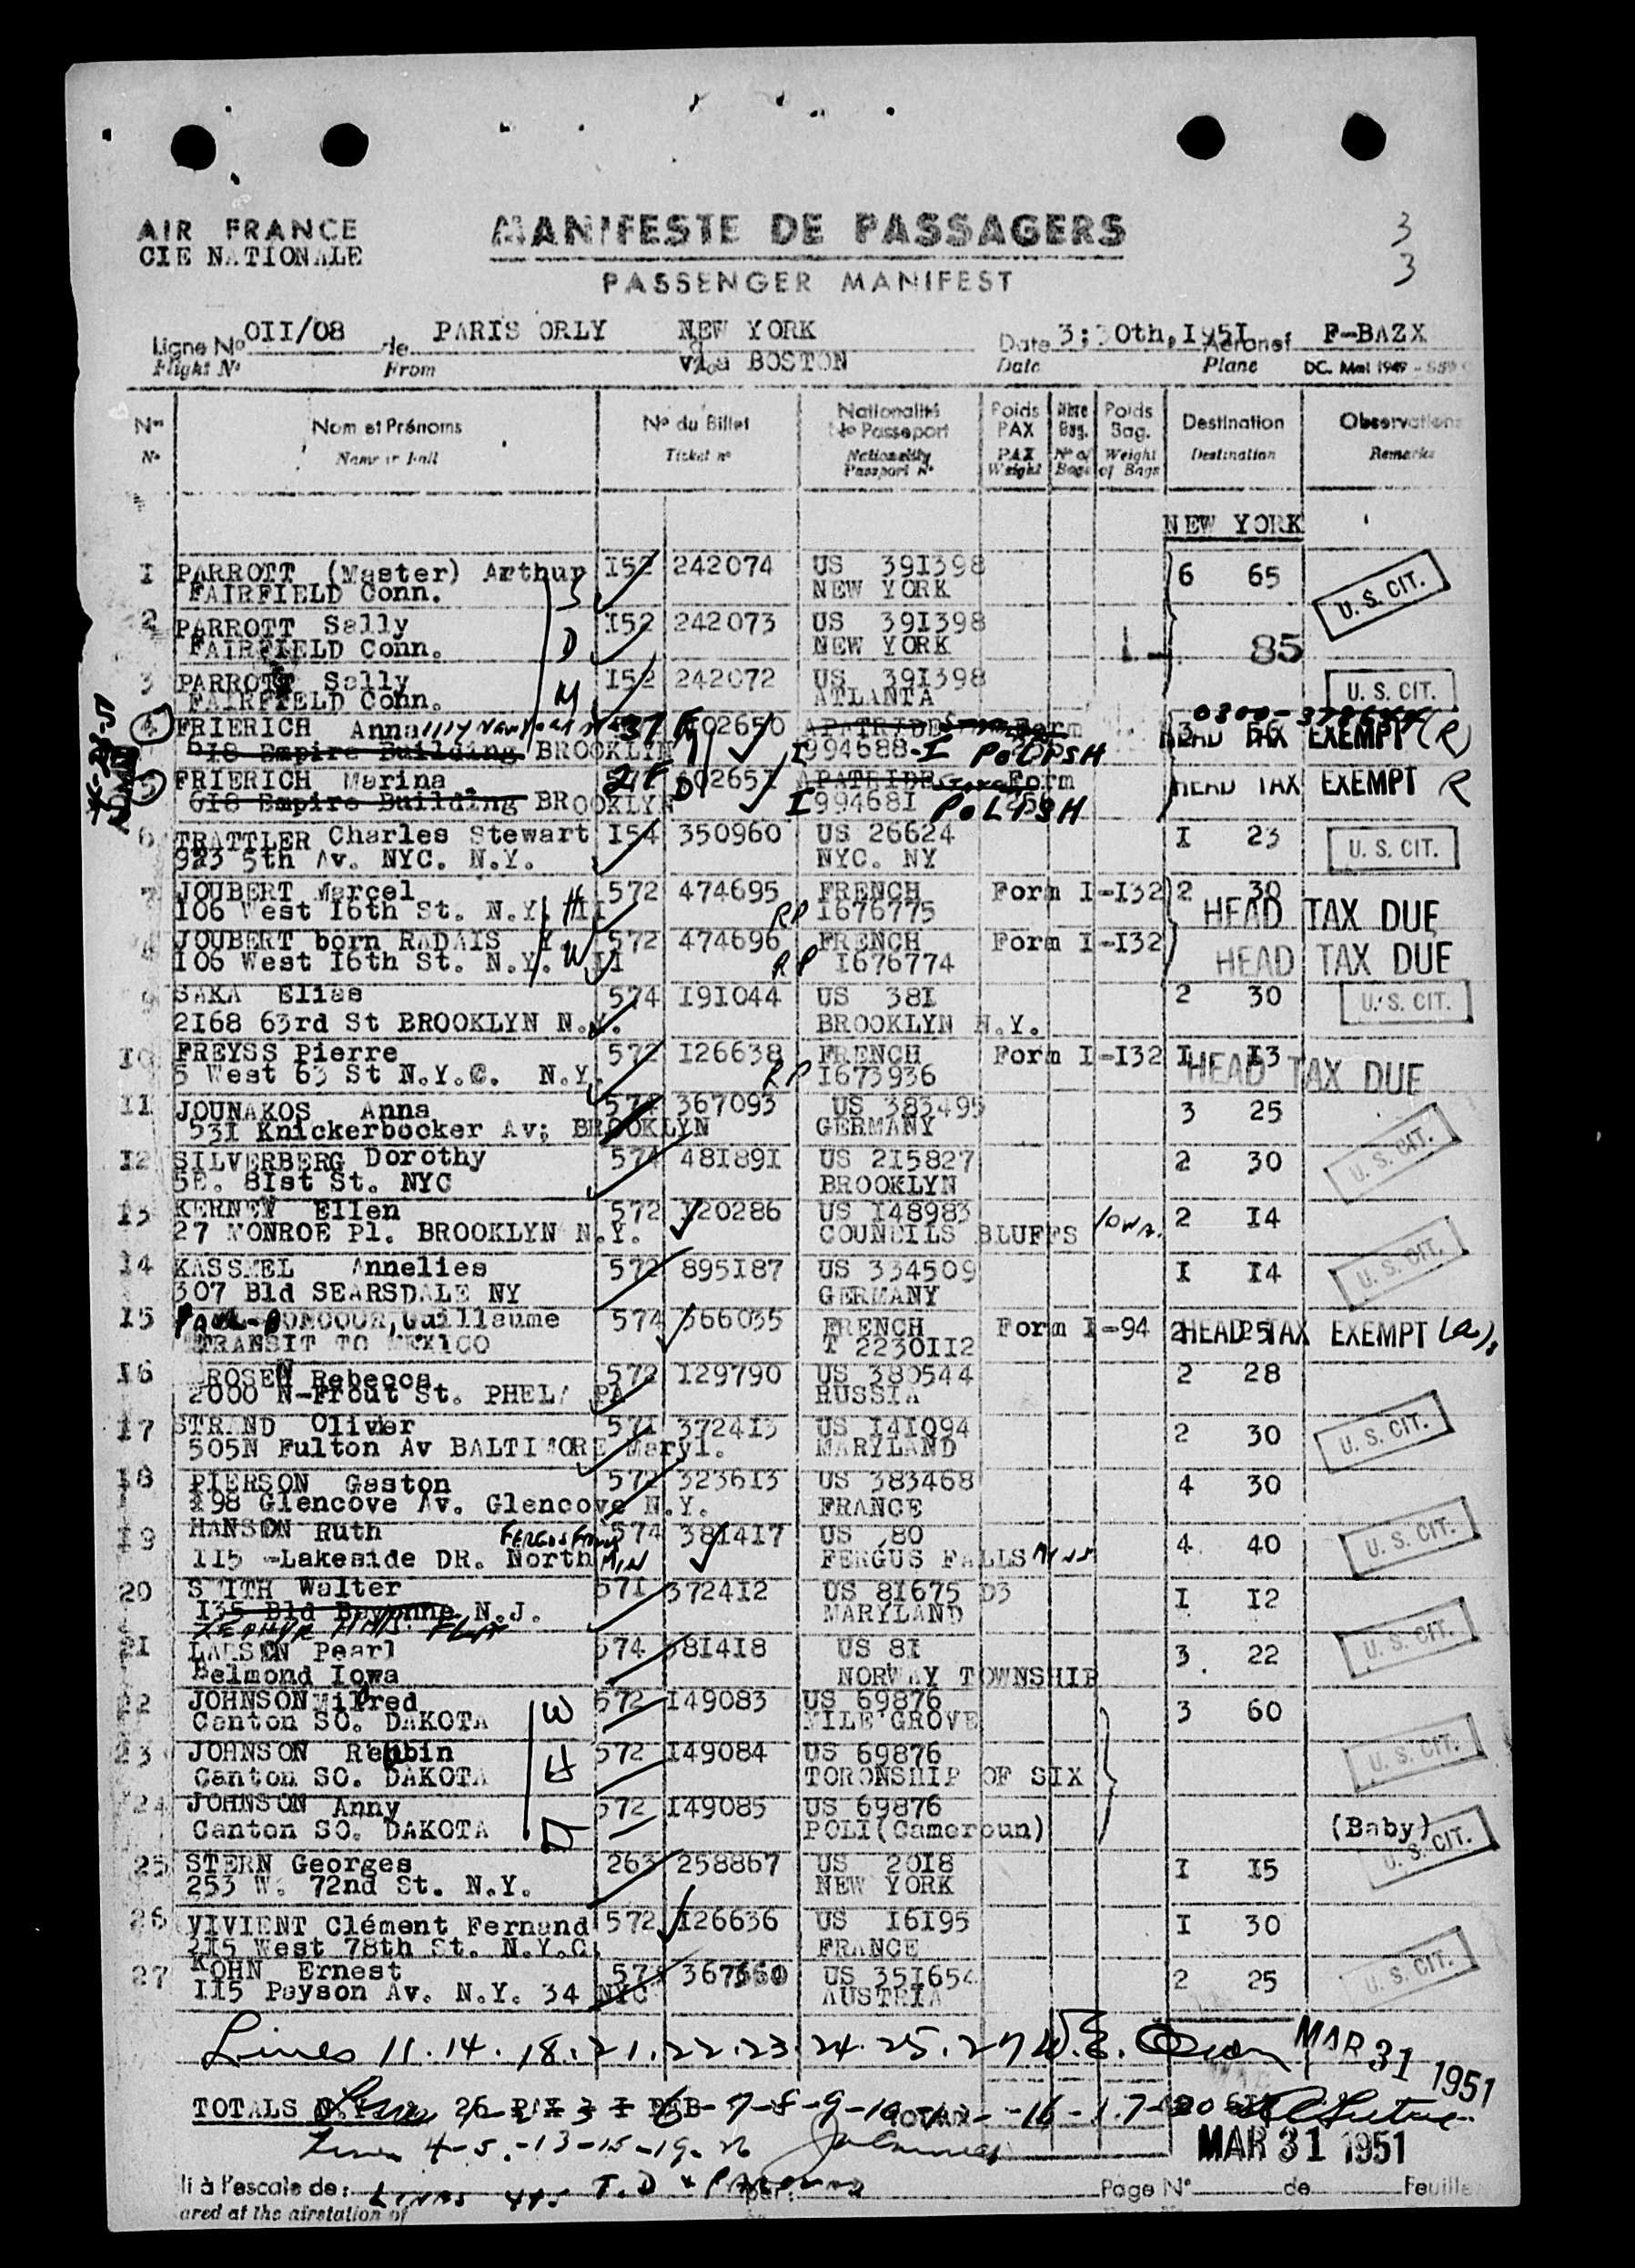 3
3
AIR FRANCE
CIE NATIONALE
MANIFESTE DE PASSAGERS
PASSENGER MANIFEST
Ligne No OII/08 de PARIS ORLY NEW YORK Date 3;30th,I95I Aéronef F-BAZX
Flight No From via BOSTON Date Plane DC. Mai 1949
Nos Nom et Prénoms No du Billet Nationalité No Passeport Poids PAX Nbre Bag. Poids Bag. Destination Observations
No Name in full Ticket no Nationality Passport No PAX Weight No of Bags Weight of Bags Destination Remarks
NEW YORK
I PARROTT (Master) Arthur I52 242074 US 39I398 6 65 U. S. CIT.
FAIRFIELD Conn. NEW YORK
2 PARROTT Sally I52 242073 US 39I398
FAIRFIELD Conn. D NEW YORK 85
3 PARROTT Sally I52 242072 US 39I398 U. S. CIT.
FAIRFIELD Conn. M ATLANTA
4 FRIERICH Anna 602650 APATRIDE Form 3 56 HEAD TAX EXEMPT (R)
6I8 Empire Building BROOKLYN I994688-I POLISH
5 FRIERICH Marina 60265I APATRIDE Form HEAD TAX EXEMPT R
6I8 Empire Building BROOKLYN D I99468I POLISH
6 TRATTLER Charles Stewart I54 350960 US 26624 I 23 U. S. CIT.
923 5th Av. NYC. N.Y. NYC. NY
7 JOUBERT Marcel 572 474695 FRENCH Form I-I32 2 30
I06 West I6th St. N.Y. II H RP I676775 HEAD TAX DUE
8 JOUBERT born RADAIS Y. 572 474696 FRENCH Form I-I32
I06 West I6th St. N.Y. II W RP I676774 HEAD TAX DUE
9 SAKA Elias 574 I9I044 US 38I 2 30 U. S. CIT.
2I68 63rd St BROOKLYN N.Y. BROOKLYN N.Y.
IO FREYSS Pierre 572 I26638 FRENCH Form I-I32 I I3
5 West 63 St N.Y.C. N.Y. RP I673936 HEAD TAX DUE
II JOUNAKOS Anna 574 367093 US 383495 3 25
53I Knickerbocker Av; BROOKLYN GERMANY U. S. CIT.
I2 SILVERBERG Dorothy 574 48I89I US 2I5827 2 30
5E. 8Ist St. NYC BROOKLYN
I3 KERNEY Ellen 572 I20286 US I48983 2 I4
27 MONROE Pl. BROOKLYN N.Y. COUNCILS BLUFFS IOWA. U. S. CIT.
I4 KASSMEL Annelies 572 895I87 US 334509 I I4
307 Bld SEARSDALE NY GERMANY
I5 PAUL-BONCOUR, Guillaume 574 366035 FRENCH Form I-94 2 25 HEAD TAX EXEMPT
TRANSIT TO MEXICO T 2230II2
I6 ROSEN Rebecca 572 I29790 US 380544 2 28
2000 N-Frout St. PHELA PA RUSSIA
I7 STRAND Oliver 57I 3724I3 US I4I094 2 30 U. S. CIT.
505N Fulton Av BALTIMORE Maryl. MARYLAND
I8 PIERSON Gaston 572 3236I3 US 383468 4 30
I98 Glencove Av. Glencove N.Y. FRANCE
I9 HANSON Ruth FERGUS FALLS 574 38I4I7 US 80 4 40 U. S. CIT.
II5 -Lakeside DR. North MIN FERGUS FALLS MINN
20 SMITH Walter 57I 3724I2 US 8I675 D3 I I2
I35 Bld Bayonne N.J. MARYLAND
ZEPHYR HILLS FLA U. S. CIT.
2I LARSON Pearl 574 38I4I8 US 8I 3 22
Belmond Iowa NORWAY TOWNSHIP
22 JOHNSON Milfred 572 I49083 US 69876 3 60
Canton SO. DAKOTA W MILE GROVE
23 JOHNSON Reubin 572 I49084 US 69876 U. S. CIT.
Canton SO. DAKOTA H TORONSHIP OF SIX
24 JOHNSON Anny 572 I49085 US 69876
Canton SO. DAKOTA D POLI(Cameroun) (Baby)
25 STERN Georges 263 258867 US 20I8 I I5 U. S. CIT.
253 W. 72nd St. N.Y. NEW YORK
26 VIVIENT Clément Fernand 572 I26636 US I6I95 I 30
2I5 West 78th St. N.Y.C. FRANCE
27 KOHN Ernest 367660 US 35I654 2 25 U. S. CIT.
II5 Payson Av. N.Y. 34 NYC AUSTRIA
Lines 11.14.18.21.22.23.24.25.27 MAR 31 1951
TOTALS 7-8-9-10 -16-17-20
4-5-13-15-19-26 MAR 31 1951
li à l'escale de: LINES 4+5 par: Page No de Feuille
ared at the airstation of